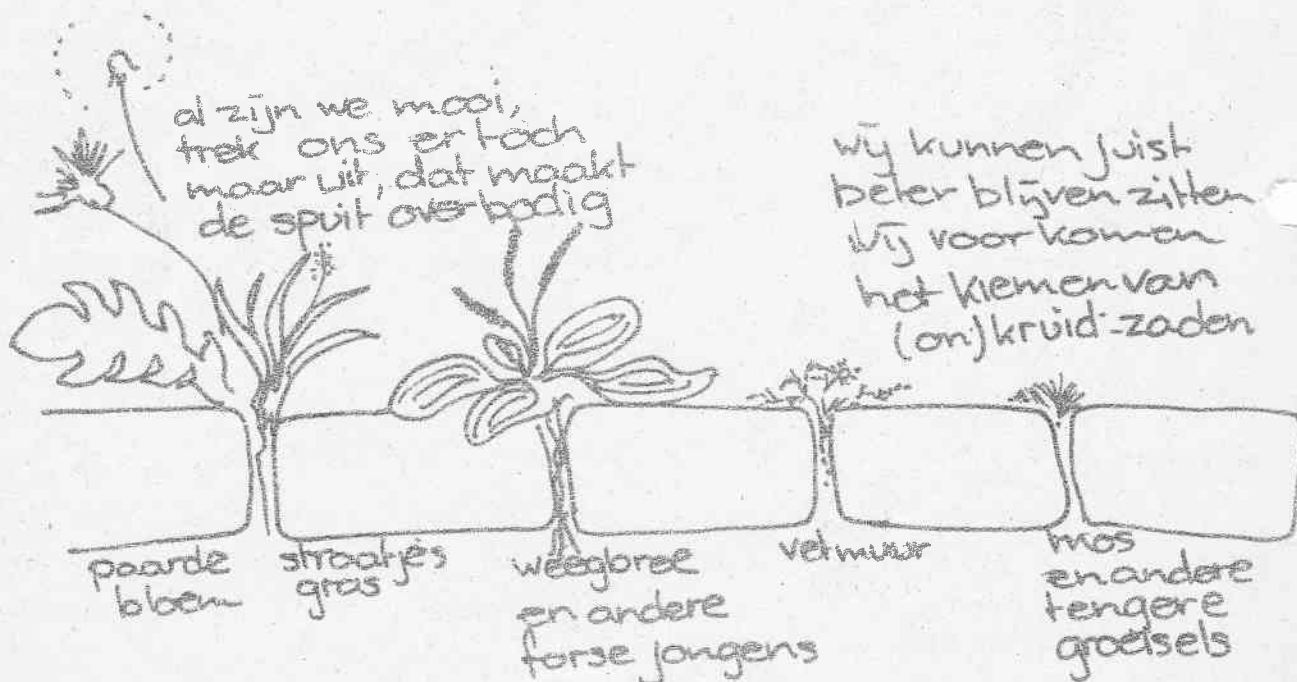 al zijn we mooi,
trek ons er toch
maar uit, dat maakt
de spuit overbodig
wij kunnen juist
beter blijven zitten
wij voorkomen
het kiemen van
(on)kruid-zaden
paarde
bloem
straatjes
gras
weegbree
en andere
forse jongens
vetmuur
mos
en andere
tengere
groeisels